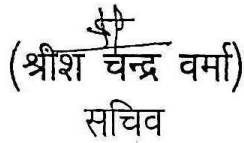 (श्रीश चन्द्र वर्मा)
सचिव